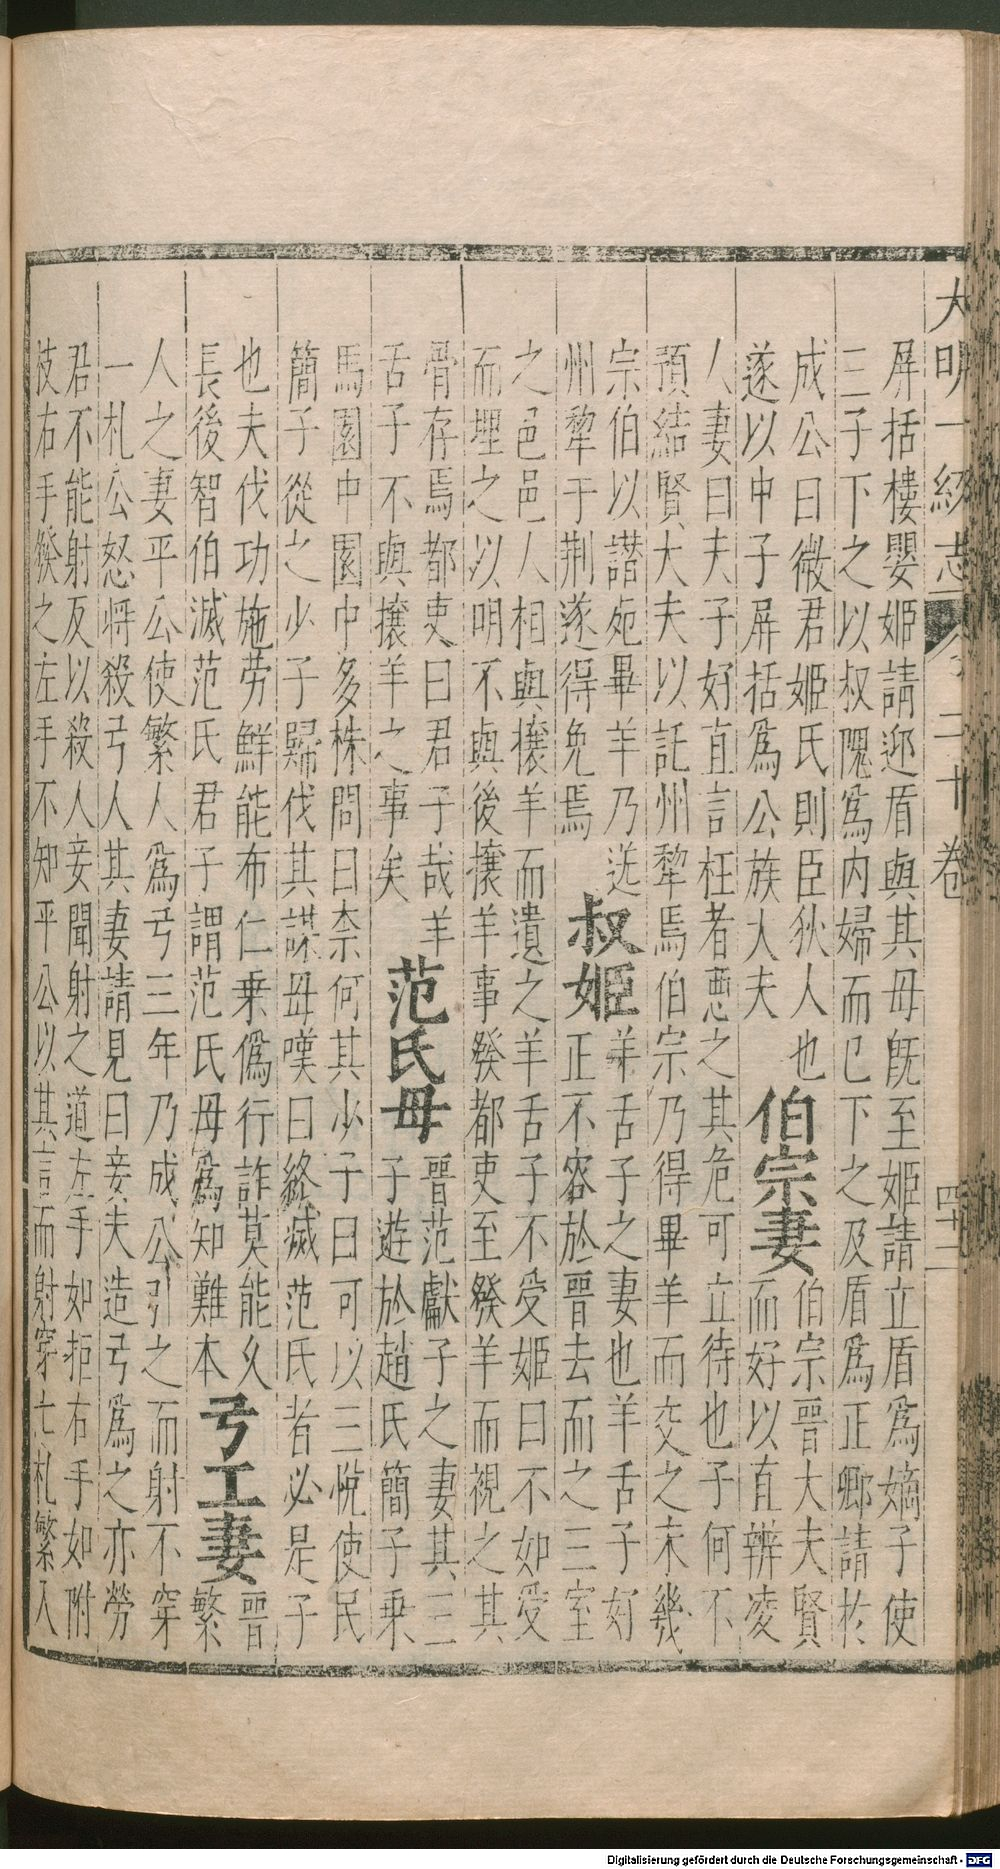 大明一統志 二十卷 四十二
屏括樓嬰姬請迎盾與其母旣至姬請立盾爲嫡子使
三子下之以叔隗爲內婦而已下之及盾爲正卿請於
成公曰微君姬氏則臣狄人也
遂以中子屏括爲公族大夫
伯宗妻
伯宗晉大夫賢
而好以直辨凌
人妻曰夫子好直言枉者惡之其危可立待也子何不
預結賢大夫以託州犂焉伯宗乃得畢羊而交之未幾
宗伯以譖宛畢羊乃送
州犂于荆遂得免焉
叔姬
羊舌子之妻也羊舌子好
正不容於晉去而之三室
之邑邑人相與攘羊而遺之羊舌子不受姬曰不如受
而埋之以明不與後攘羊事發都吏至發羊而視之其
骨存焉都吏曰君子哉羊
舌子不與攘羊之事矣
范氏母
晉范獻子之妻其三
子遊於趙氏簡子乘
馬園中園中多株問曰柰何其少子曰可以三悅使民
簡子從之少子歸伐其謀母嘆曰終滅范氏者必是子
也夫伐功施勞鮮能布仁乘僞行詐莫能久
長後智伯滅范氏君子謂范氏母爲知難本
弓工妻
晉
繁
人之妻平公使繁人爲弓三年乃成公引之而射不穿
一札公怒將殺弓人其妻請見曰妾夫造弓爲之亦勞
君不能射反以殺人妾聞射之道左手如拒右手如附
枝右手發之左手不知平公以其言而射穿七札繁人
Digitalisierung gefördert durch die Deutsche Forschungsgemeinschaft - DFG